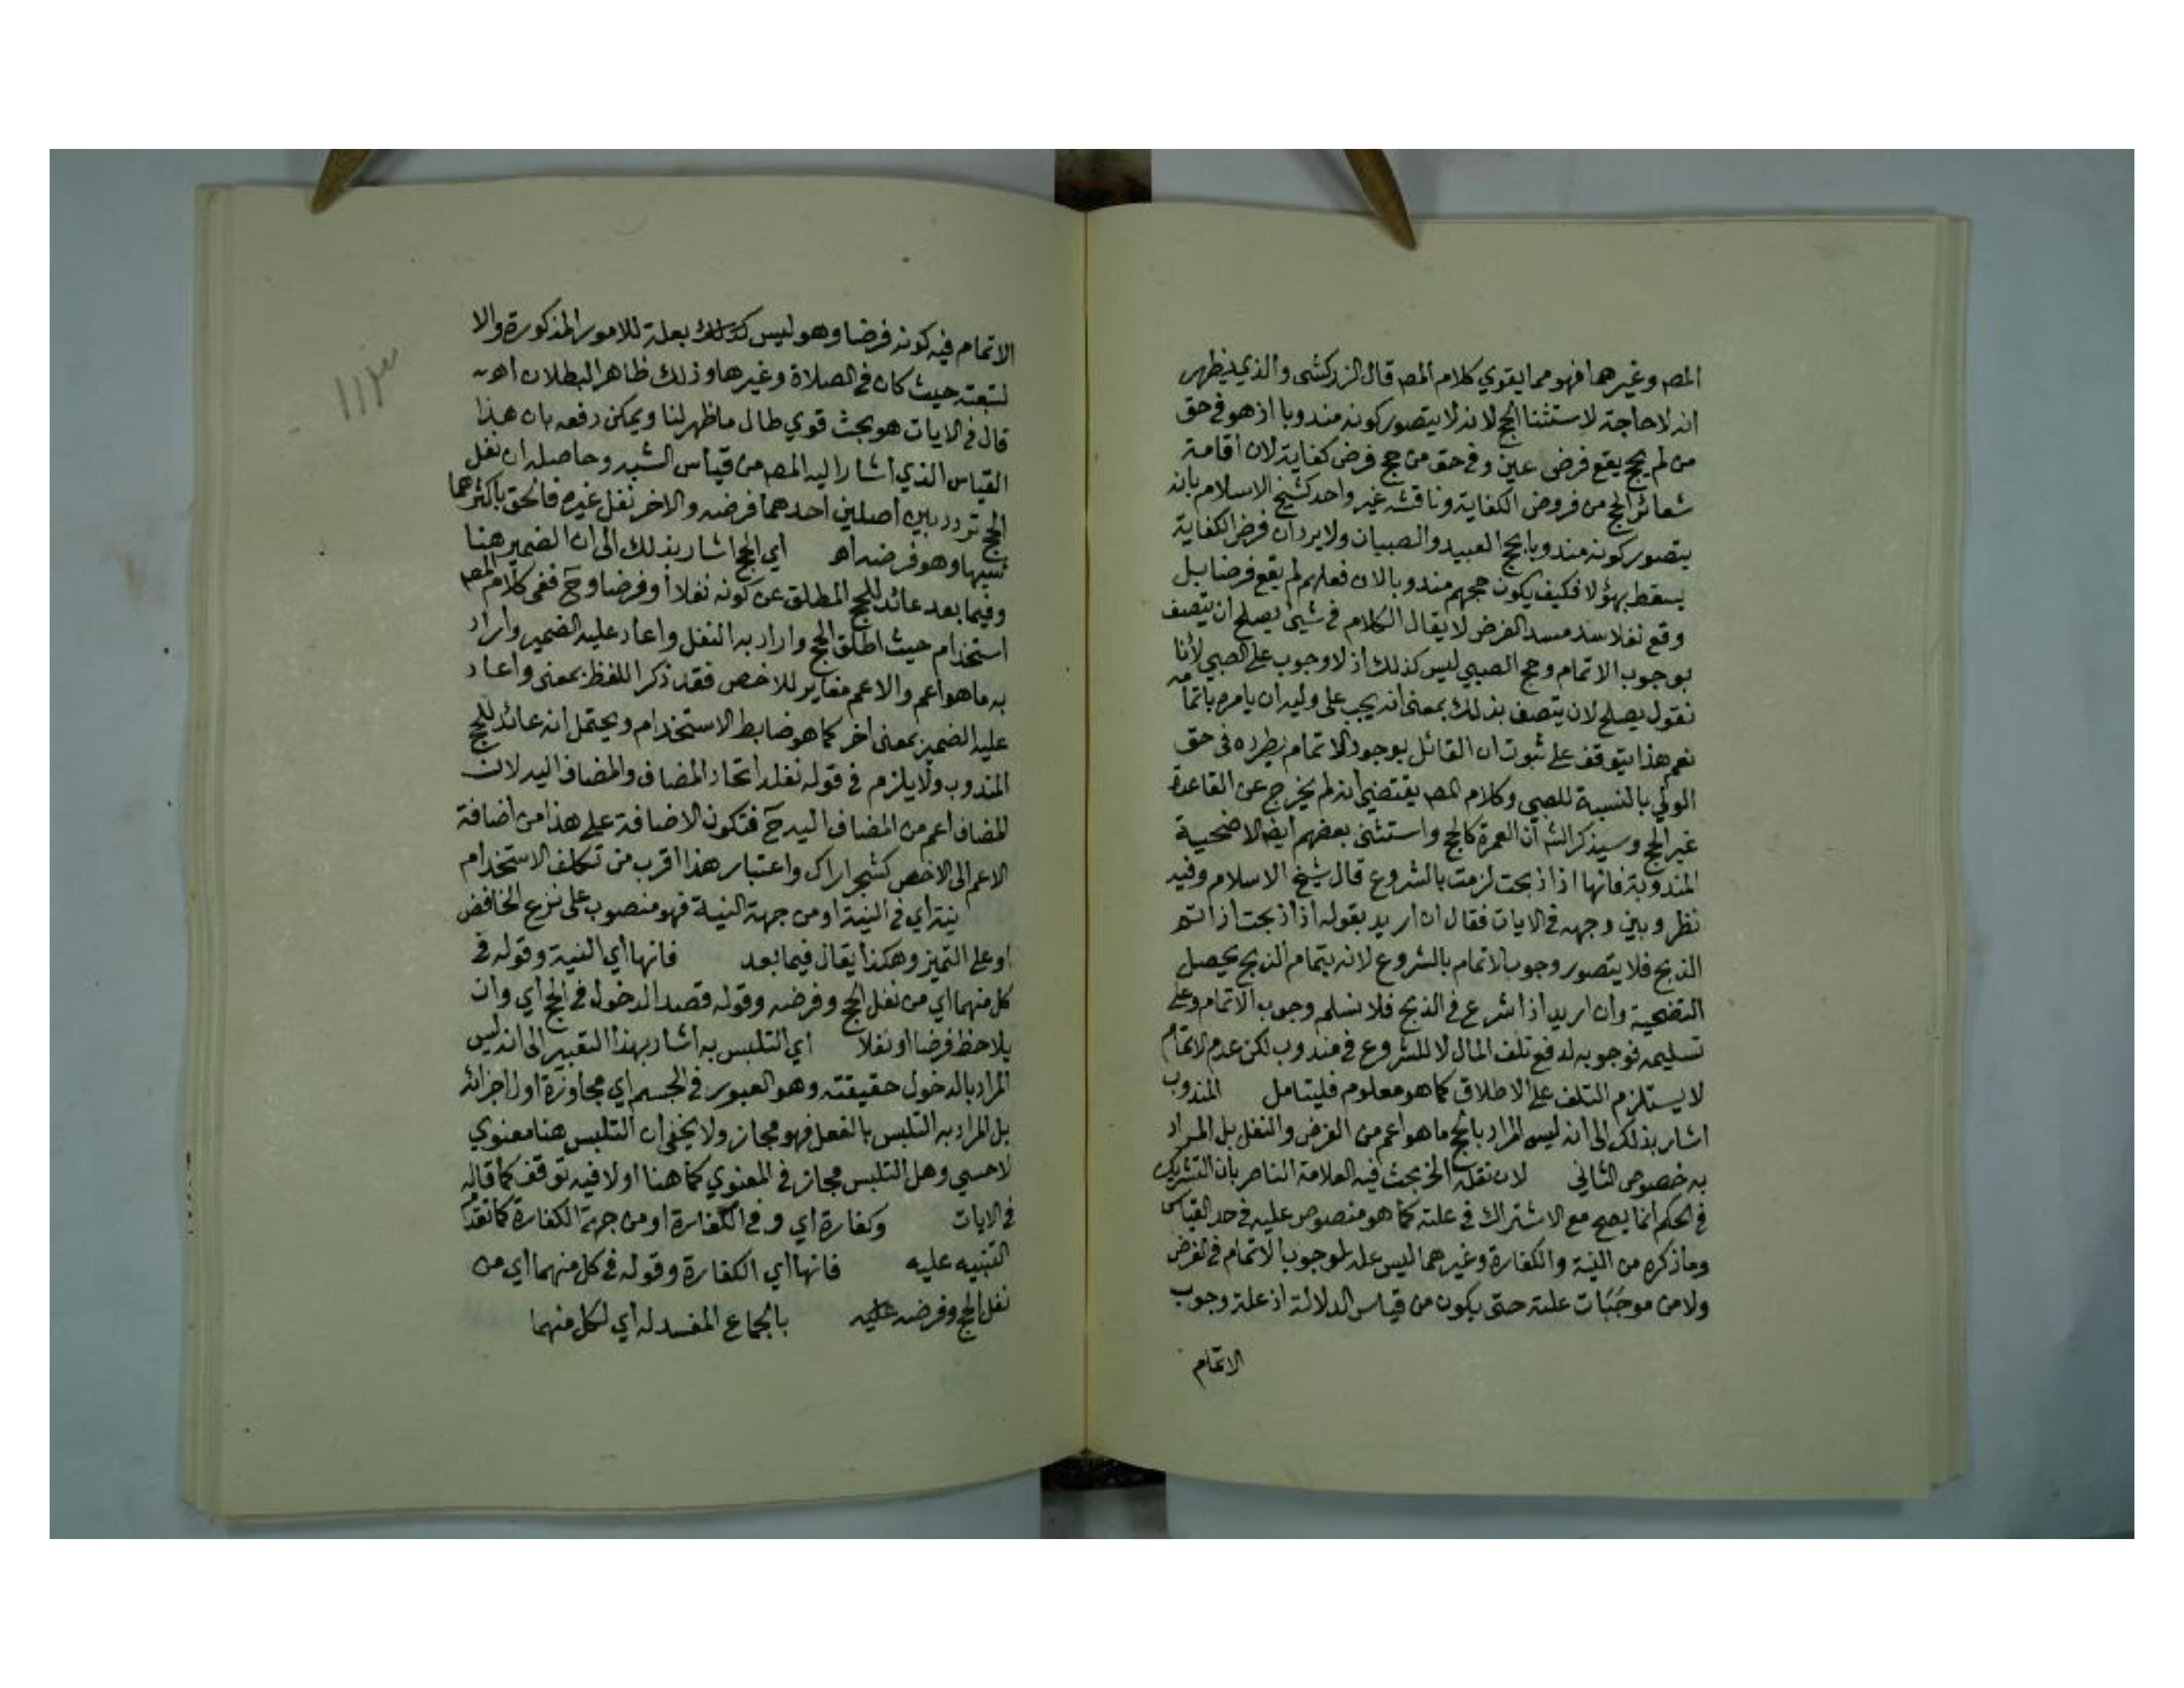 المصر وغيرهما فهو مما يقوي كلام المصر قال الزركشي والذي يظهر
انه لا حاجة لاستثنا الحج لانه لا يتصور كونه مندوبا اذ هو في حق
من لم يحج يقع فرض عين وفي حق من حج فرض كفاية لان اقامة
شعائر الحج من فروض الكفاية وناقشه غير واحد كشيخ الاسلام بانه
يتصور كونه مندوبا بحج العبيد والصبيان ولا يرد ان فرض الكفاية
يسقط بهؤلا فكيف يكون حجهم مندوبا لان فعلهم لم يقع فرضا بل
وقع نفلا سد مسد الفرض لا يقال الكلام في شيئ يصلح ان يتصف
بوجوب الاتمام وحج الصبي ليس كذلك اذ لا وجوب على الصبي لأنا
نقول يصلح لان يتصف بذلك بمعنى انه يجب على وليه ان يامره باتمامه
نعم هذا يتوقف على ثبوت ان القائل بوجود الاتمام يطرده في حق
الولي بالنسبة للصبي وكلام المصر يقتضي انه لم يخرج عن القاعدة
غير الحج وسيذكر الشر أن العمرة كالحج واستثنى بعضهم ايضا الاضحية
المندوبة فانها اذا ذبحت لزمت بالشروع قال شيخ الاسلام وفيه
نظر وبين وجهه في الايات فقال ان اريد بقوله اذا ذبحت اذا تم
الذبح فلا يتصور وجوب الاتمام بالشروع لانه بتمام الذبح يحصل
التضحية وان اريد اذا شرع في الذبح فلا نسلم وجوب الاتمام وعلى
تسليمه فوجوبه لدفع تلف المال لا للشروع في مندوب لكن عدم الاتمام
لا يستلزم التلف على الاطلاق كما هو معلوم فليتامل المندوب
اشار بذلك الى انه ليس المراد بالحج ما هو اعم من الفرض والنفل بل المراد
به خصوص الثاني لان نفله الخ بحث فيه العلامة الناصر بأن التشريك
في الحكم انما يصح مع الاشتراك في علته كما هو منصوص عليه في حد القياس
وما ذكره من النية والكفارة وغيرهما ليس علة لوجوب الاتمام في الفرض
ولا من موجبات علته حتى يكون من قياس الدلالة اذ علة وجوب
الاتمام
الاتمام فيه كونه فرضا وهو ليس كذلك بعلة للامور المذكورة والا
لتبعته حيث كان في الصلاة وغيرها وذلك ظاهر البطلان اهـ
قال في الايات هو بحث قوي طال ما ظهر لنا ويمكن دفعه بان هذا
القياس الذي اشار اليه المصر من قياس الشبه وحاصله ان نفل
الحج تردد بين أصلين احدهما فرضه والاخر نفل غيره فالحق باكثرهما
شبها وهو فرضه اهـ أي الحج اشار بذلك الى ان الضمير هنا
وفيما بعد عائد للحج المطلق عن كونه نفلا أو فرضا وح ففي كلام المصر
استخدام حيث اطلق الحج واراد به النفل واعاد عليه الضمير واراد
به ما هو اعم والاعم مغاير للاخص فقد ذكر اللفظ بمعنى واعاد
عليه الضمير بمعنى اخر كما هو ضابط الاستخدام ويحتمل انه عائد للحج
المندوب ولا يلزم في قوله نفله اتحاد المضاف والمضاف اليه لان
المضاف اعم من المضاف اليه ح فتكون الاضافة على هذا من اضافة
الاعم الى الاخص كشجر اراك واعتبار هذا اقرب من تكلف الاستخدام
نية اي في النية او من جهة النية فهو منصوب على نزع الخافض
او على التميز وهكذا يقال فيما بعد فانها أي النية وقوله في
كل منهما اي من نفل الحج وفرضه وقوله قصد الدخول في الحج أي وان
يلاحظ فرضا او نفلا أي التلبس به اشار بهذا التعبير الى انه ليس
المراد بالدخول حقيقته وهو العبور في الجسم اي مجاوزة اول اجزائه
بل المراد به التلبس بالفعل فهو مجاز ولا يخفى ان التلبس هنا معنوي
لا حسي وهل التلبس مجاز في المعنوي كما هنا اولا فيه توقف كما قاله
في الايات وكفارة اي وفي الكفارة او من جهة الكفارة كما تقدم
التنبيه عليه فانها أي الكفارة وقوله في كل منهما اي من
نفل الحج وفرضه عليه بالجماع المفسد له أي لكل منهما